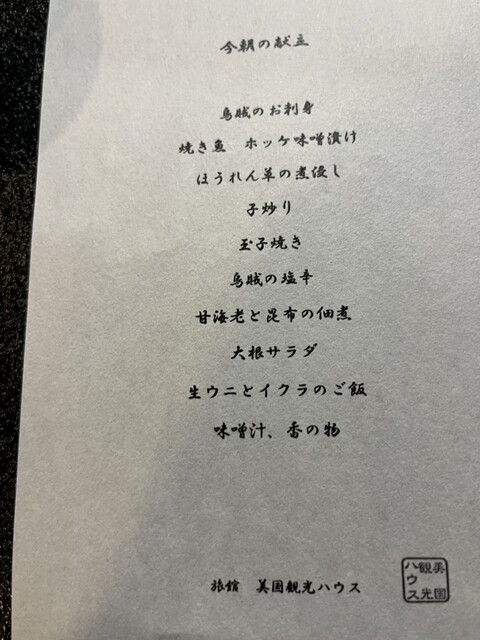 今朝の献立
烏賊のお刺身
焼き魚　ホッケ味噌漬け
ほうれん草の煮浸し
子炒り
玉子焼き
烏賊の塩辛
甘海老と昆布の佃煮
大根サラダ
生ウニとイクラのご飯
味噌汁、香の物
旅館　美国観光ハウス
美国観光ハウス